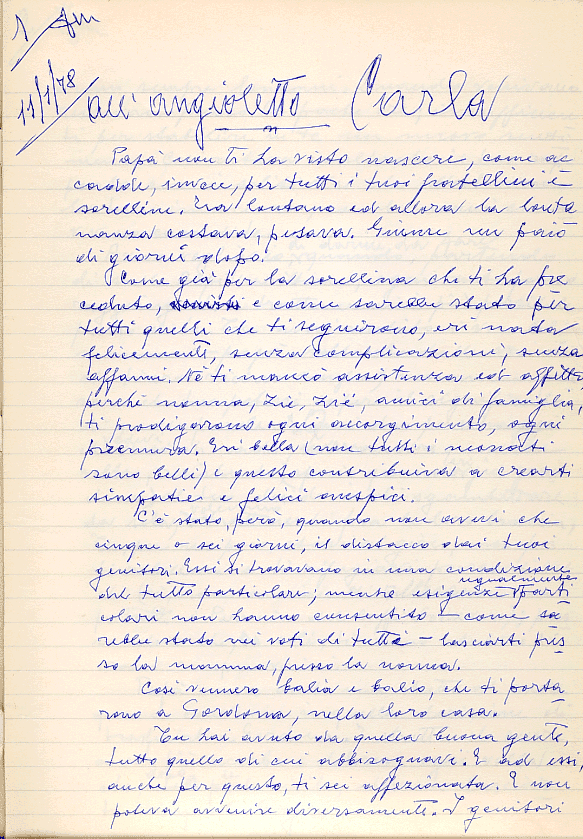 11/1/78
all'angioletto Carla
Papà non ti ha visto nascere, come ac
cadde, invece, per tutti i tuoi fratellini e
sorelline. Era lontano ed allora la lonta
nanza costava, pesava. Giunse un paio
di giorni dopo.
Come già per la sorellina che ti ha pre
ceduto, e come sarebbe stato per
tutti quelli che ti seguirono, eri nata
felicemente, senza complicazioni, senza
affanni. Nè ti mancò assistenza ed affetto
perché nonna, zii, zie, amici di famiglia,
ti prodigarono ogni accorgimento, ogni
premura. Eri bella (non tutti i neonati
sono belli) e questo contribuiva a crearti
simpatie e felici auspici.
C'è stato, però, quando non avevi che
cinque o sei giorni, il distacco dai tuoi
genitori. Essi si trovavano in una condizione
del tutto particolare; mentre esigenze ugualmente parti
colari non hanno consentito - come sa
rebbe stato nei voti di tutti - lasciarti pres
so la mamma, presso la nonna.
Così vennero balia e balio, che ti porta
rono a Gordona, nella loro casa.
Tu hai avuto da quella buona gente,
tutto quello di cui abbisognavi. E ad essi,
anche per questo, ti sei affezionata. E non
poteva avvenire diversamente. I genitori